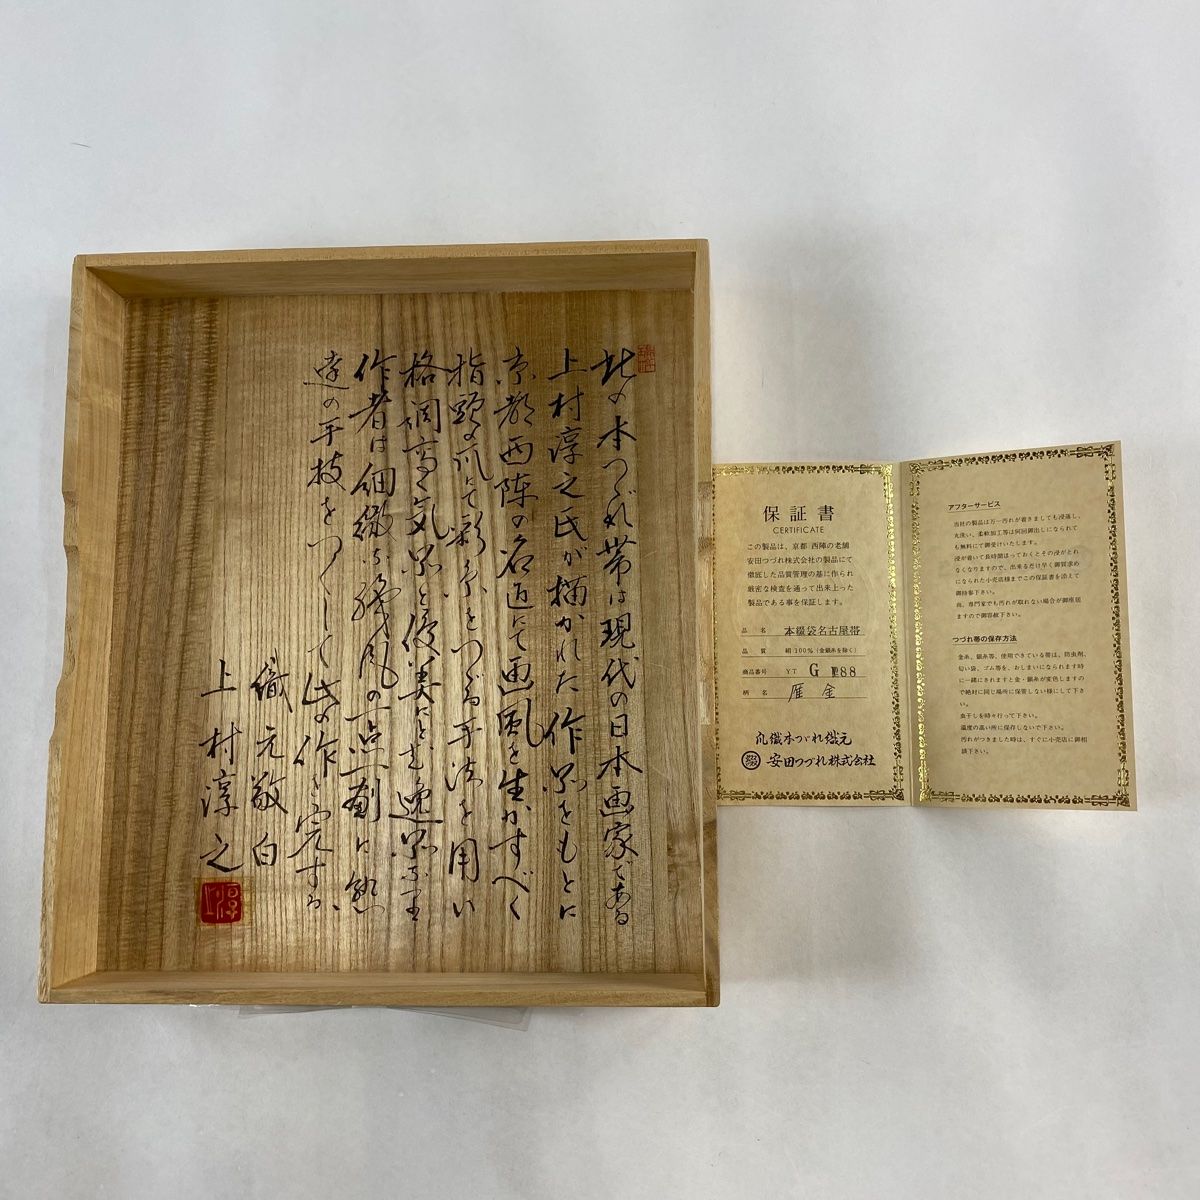 此の本つづれ帯は現代の日本画家である
上村淳之氏が描かれた作品をもとに
京都西陣の名匠にて画風を生かすべく
指頭の爪にて彩糸をつづる手法を用い
格調高き気品と優美
作者は細緻な
遠の手技を
織元敬白
上村淳之
保証書
CERTIFICATE
この製品は、京都 西陣の老舗
安田つづれ株式会社の製品にて
徹底した品質管理の基に作られ
厳密な検査を通って出来上った
製品である事を保証します。
品名 本綴袋名古屋帯
品質 絹100%(金銀糸を除く)
商品番号 YT G №88
柄名 雁金
爪織本つづれ織元
安田つづれ株式会社
アフターサービス
当社の製品は万一汚れが着きましても浸落し、
丸洗い、柔軟加工等は何回御出しになられて
も無料にて御受けいたします。
浸が着いて長時間ほっておくとその浸がとれ
なくなりますので、出来るだけ早く御買求め
になられた小売店様までこの保証書を添えて
御持参下さい。
尚、専門家でも汚れが取れない場合が御座居
ますので御容赦下さい。
つづれ帯の保存方法
金糸、銀糸等、使用できている帯は、防虫剤、
匂い袋、ゴム等を、おしまいになられます時
に一緒にされますと金・銀糸が変色しますの
で絶対に同じ場所に保管しない様にして下さ
い。
虫干しを時々行って下さい。
温度の高い所に保存しないで下さい。
汚れがつきました時は、すぐに小売店に御相
談下さい。